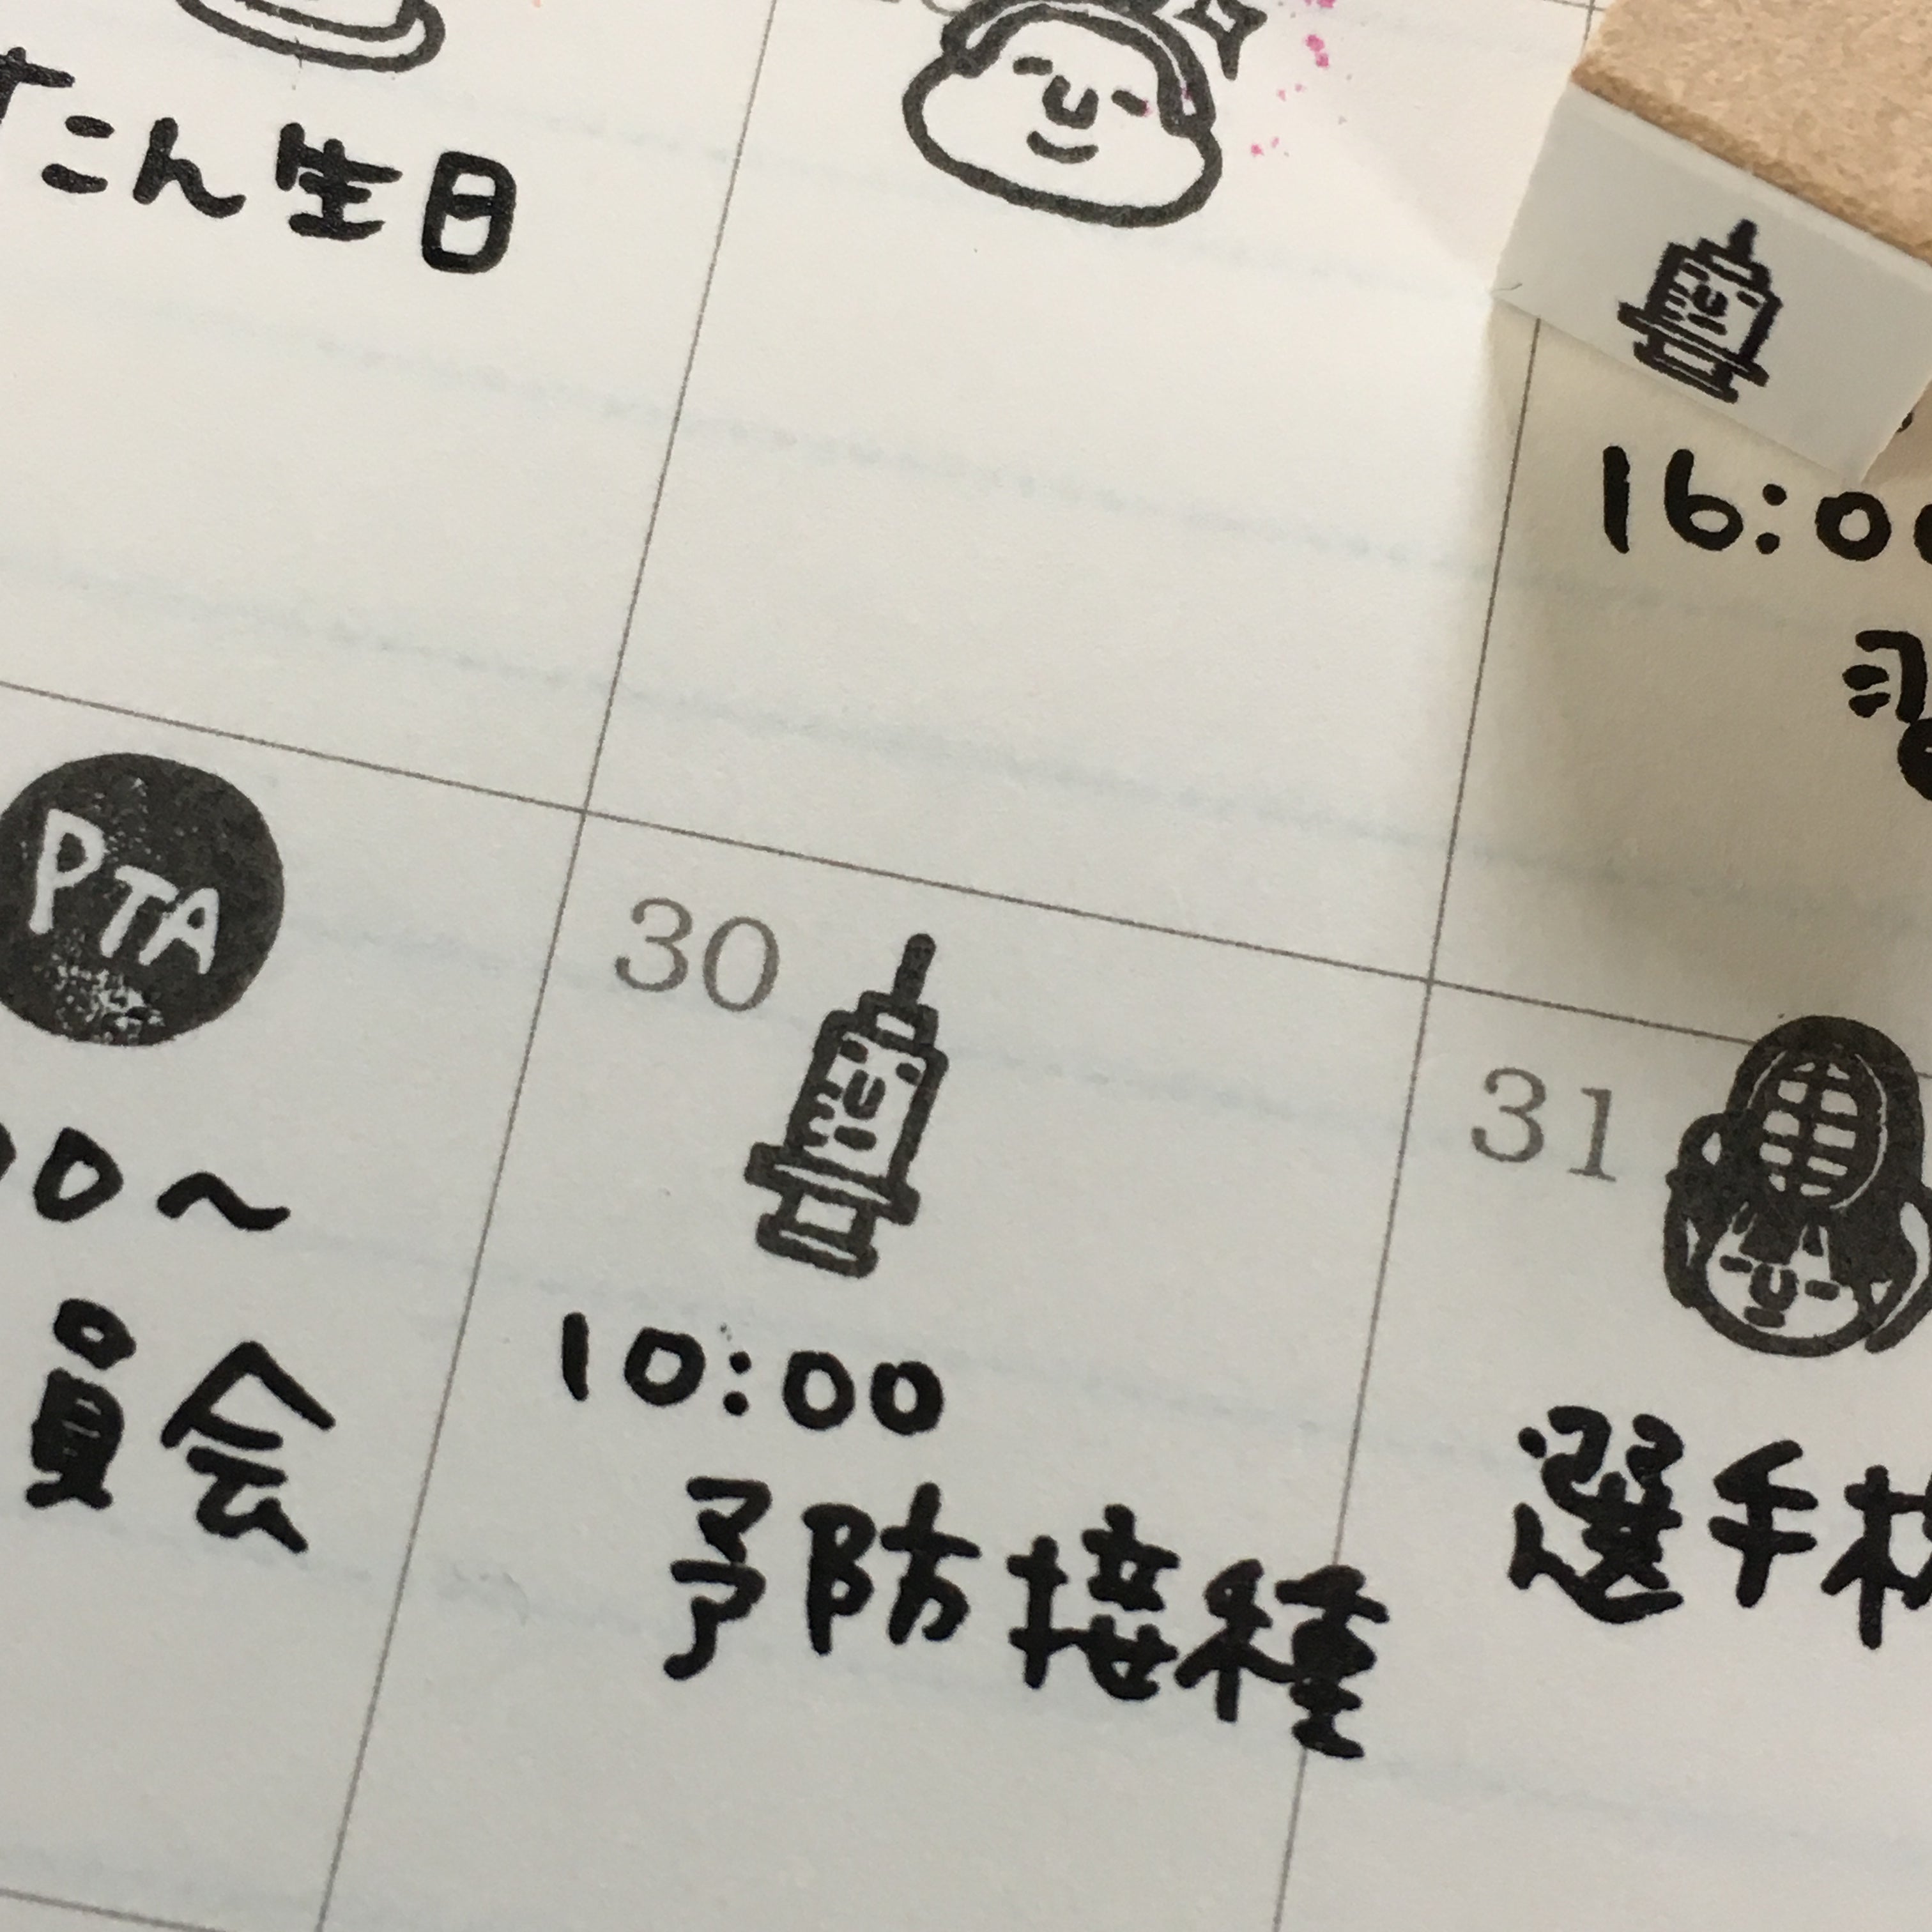 こん生日
16:00
PTA
00～
員会
30
10:00
予防接種
31
選手